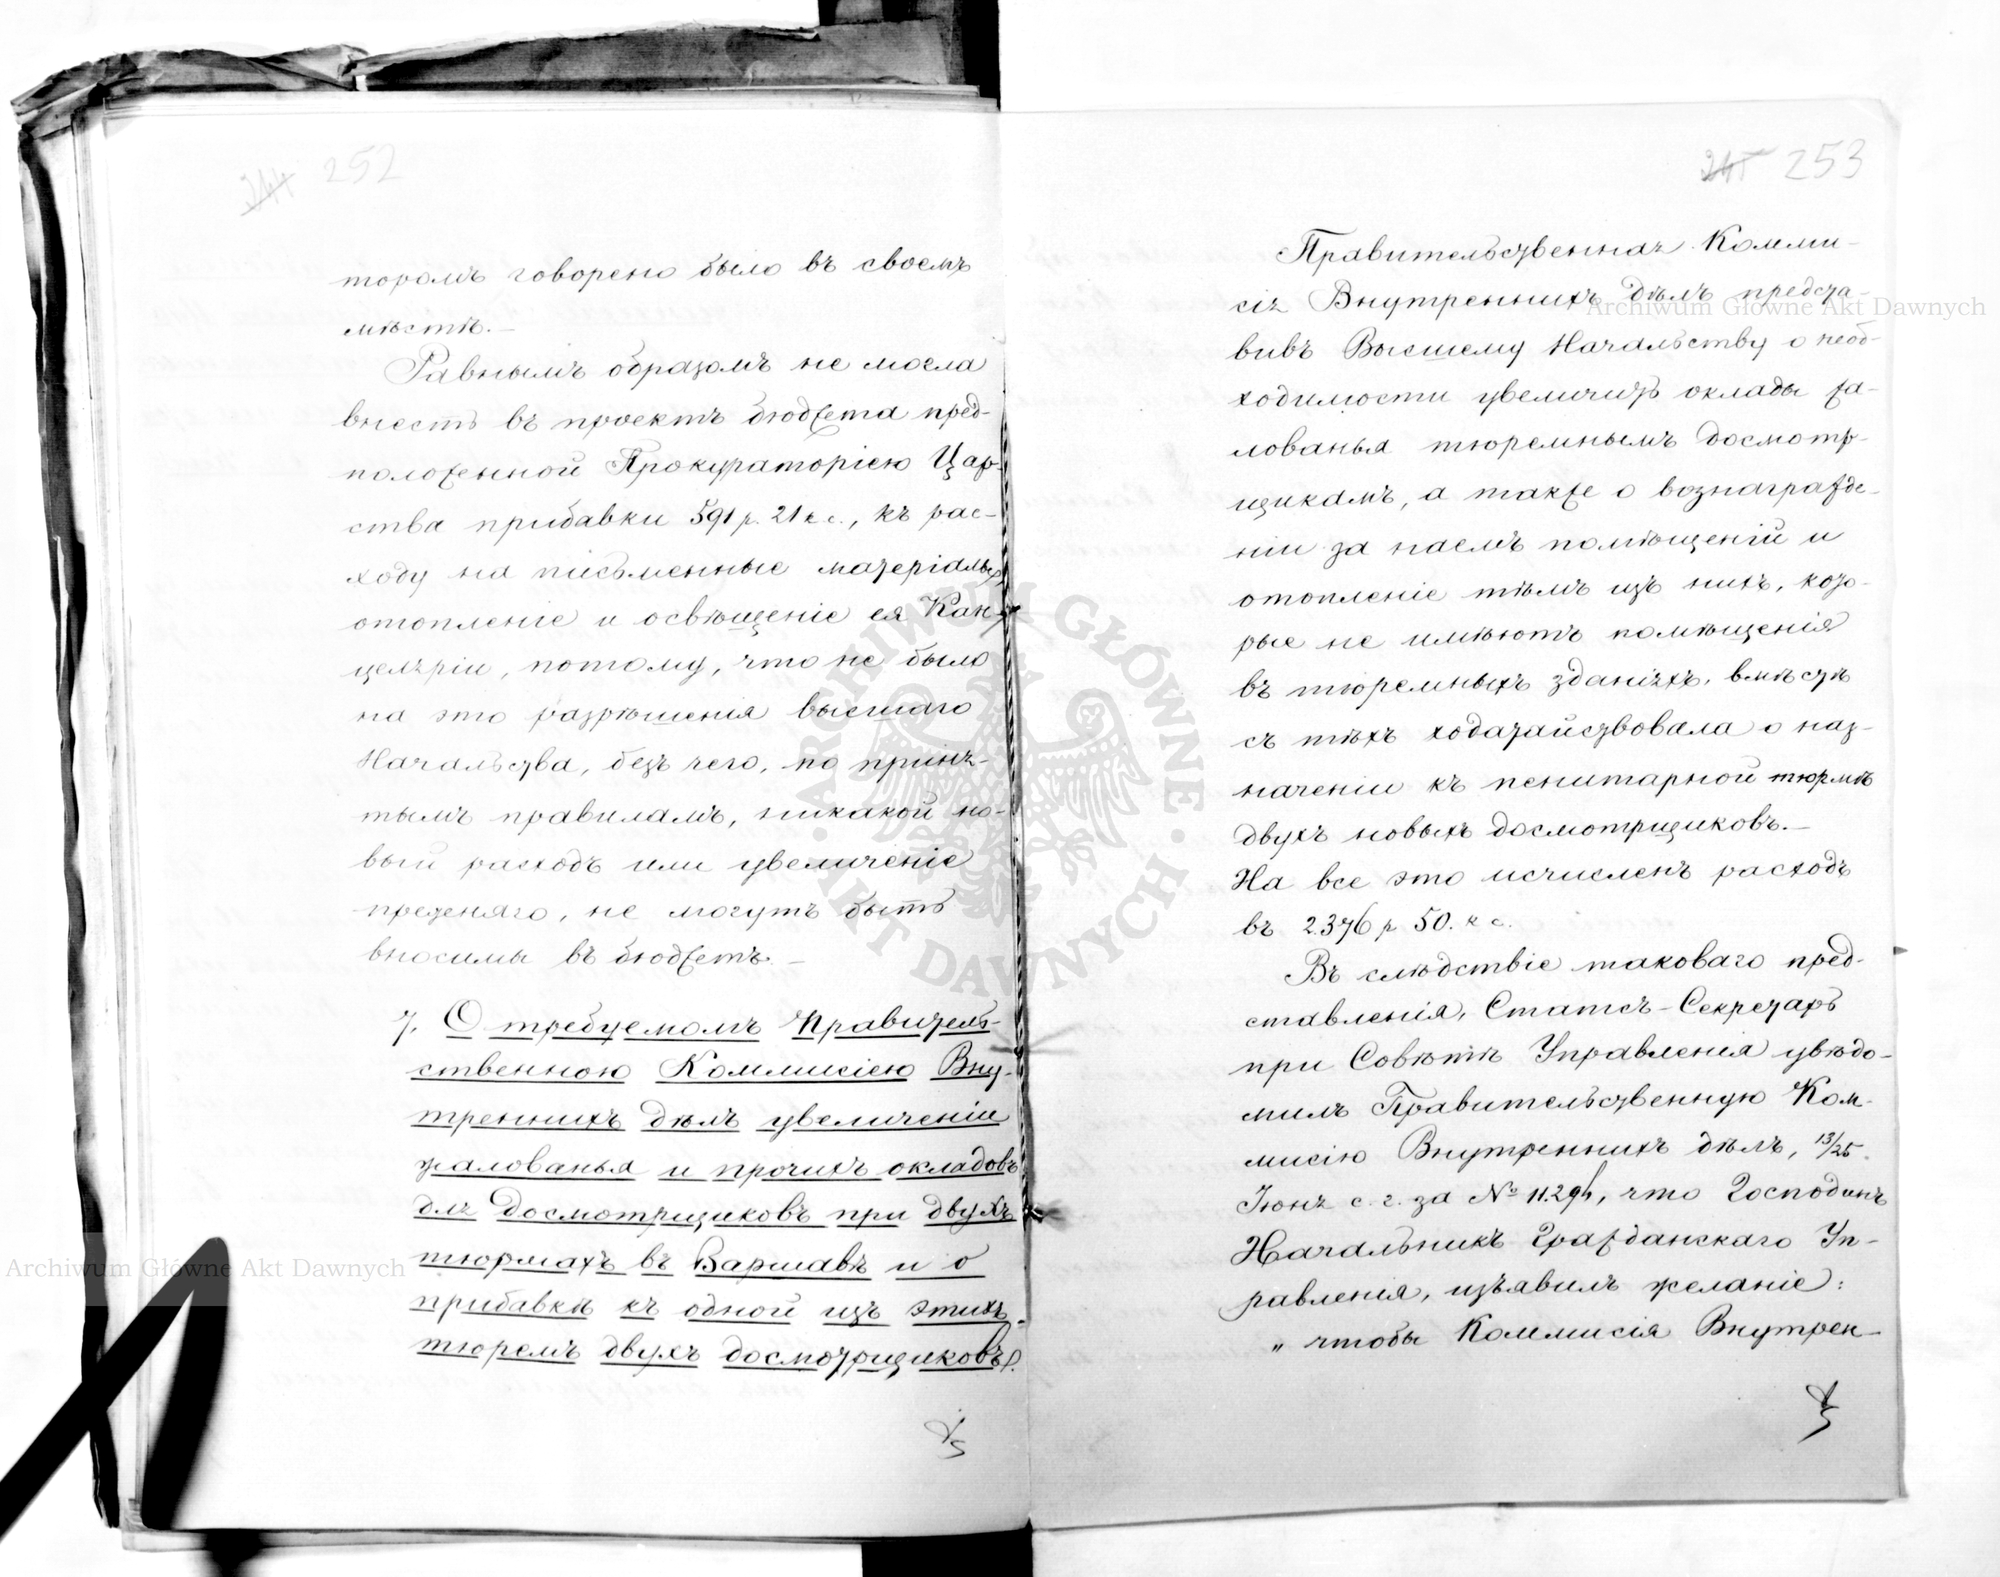 252
торомъ говорено было въ своемъ
мѣстѣ.—
Равнымъ образомъ не могла
внесть въ проектъ бюджета пред-
положенной Прокураторіею Цар-
ства прибавки 591 р. 21 к с., къ рас-
ходу на письменные матеріалы,
отопленіе и освѣщеніе ея Кан-
целяріи, потому, что не было
на это разрѣшенія высшаго
Начальства, безъ чего, по приня-
тымъ правиламъ, никакой но-
вый расходъ или увеличеніе
прежняго, не могутъ быть
вносимы въ бюджетъ.—
7. О требуемомъ Правитель-
ственною Коммисіею Вну-
треннихъ дѣлъ увеличеніи
жалованья и прочихъ окладовъ
для Досмотрщиковъ при двухъ
тюрмахъ въ Варшавѣ и о
прибавкѣ къ одной изъ этихъ
тюремъ двухъ досмотрщиковъ.
253
Правительственная Комми-
сія Внутреннихъ Дѣлъ предста-
вивъ Высшему Начальству о необ-
ходимости увеличить оклады жа-
лованья тюремнымъ досмотр-
щикамъ, а также о вознагражде-
ніи за наемъ помѣщеній и
отопленіе тѣмъ изъ нихъ, кото-
рые не имѣютъ помѣщенія
въ тюремныхъ зданіяхъ, вмѣстѣ
съ тѣхъ ходатайствовала о наз-
наченіи къ пенитарной тюрмѣ
двухъ новыхъ досмотрщиковъ.—
На все это исчисленъ расходъ
въ 2.376 р 50. к с.
Въ слѣдствіе таковаго пред-
ставленія, Статсъ-Секретарь
при Совѣтѣ Управленія увѣдо-
милъ Правительственную Ком-
мисію Внутреннихъ дѣлъ, 13/25
Іюня с. г. за №, что Господинъ
Начальникъ Гражданскаго Уп-
равленія, изъявилъ желаніе:
„ чтобы Коммисія Внутрен-
Archiwum Główne Akt Dawnych
Archiwum Główne Akt Dawnych
ARCHIWUM GŁÓWNE · AKT DAWNYCH ·